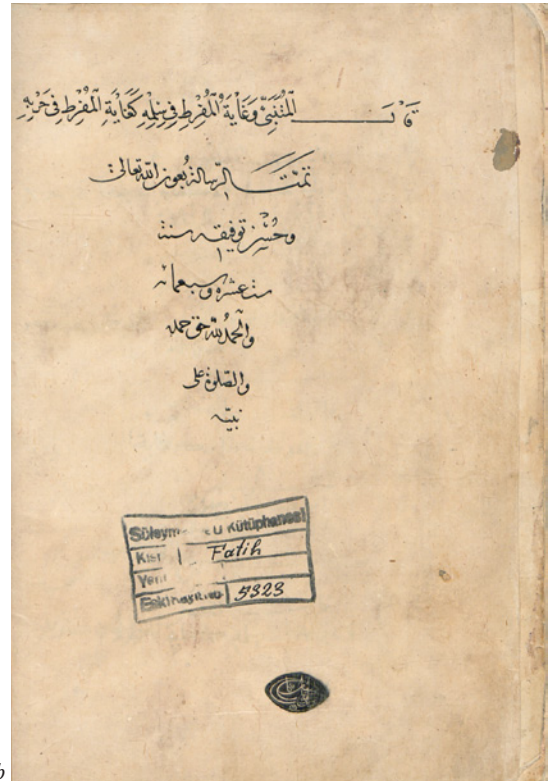 قال المتنبي وغاية المفرط في سلمه كغاية المفرط في حربه
تمت الرسالة بعون الله تعالى
وحسن توفيقه سنة
ست عشرة وسبعمائة
والحمد لله حق حمده
والصلوة على
نبيه
Kütüphanesi
Fatih
Eski Kayıt No 5323
b